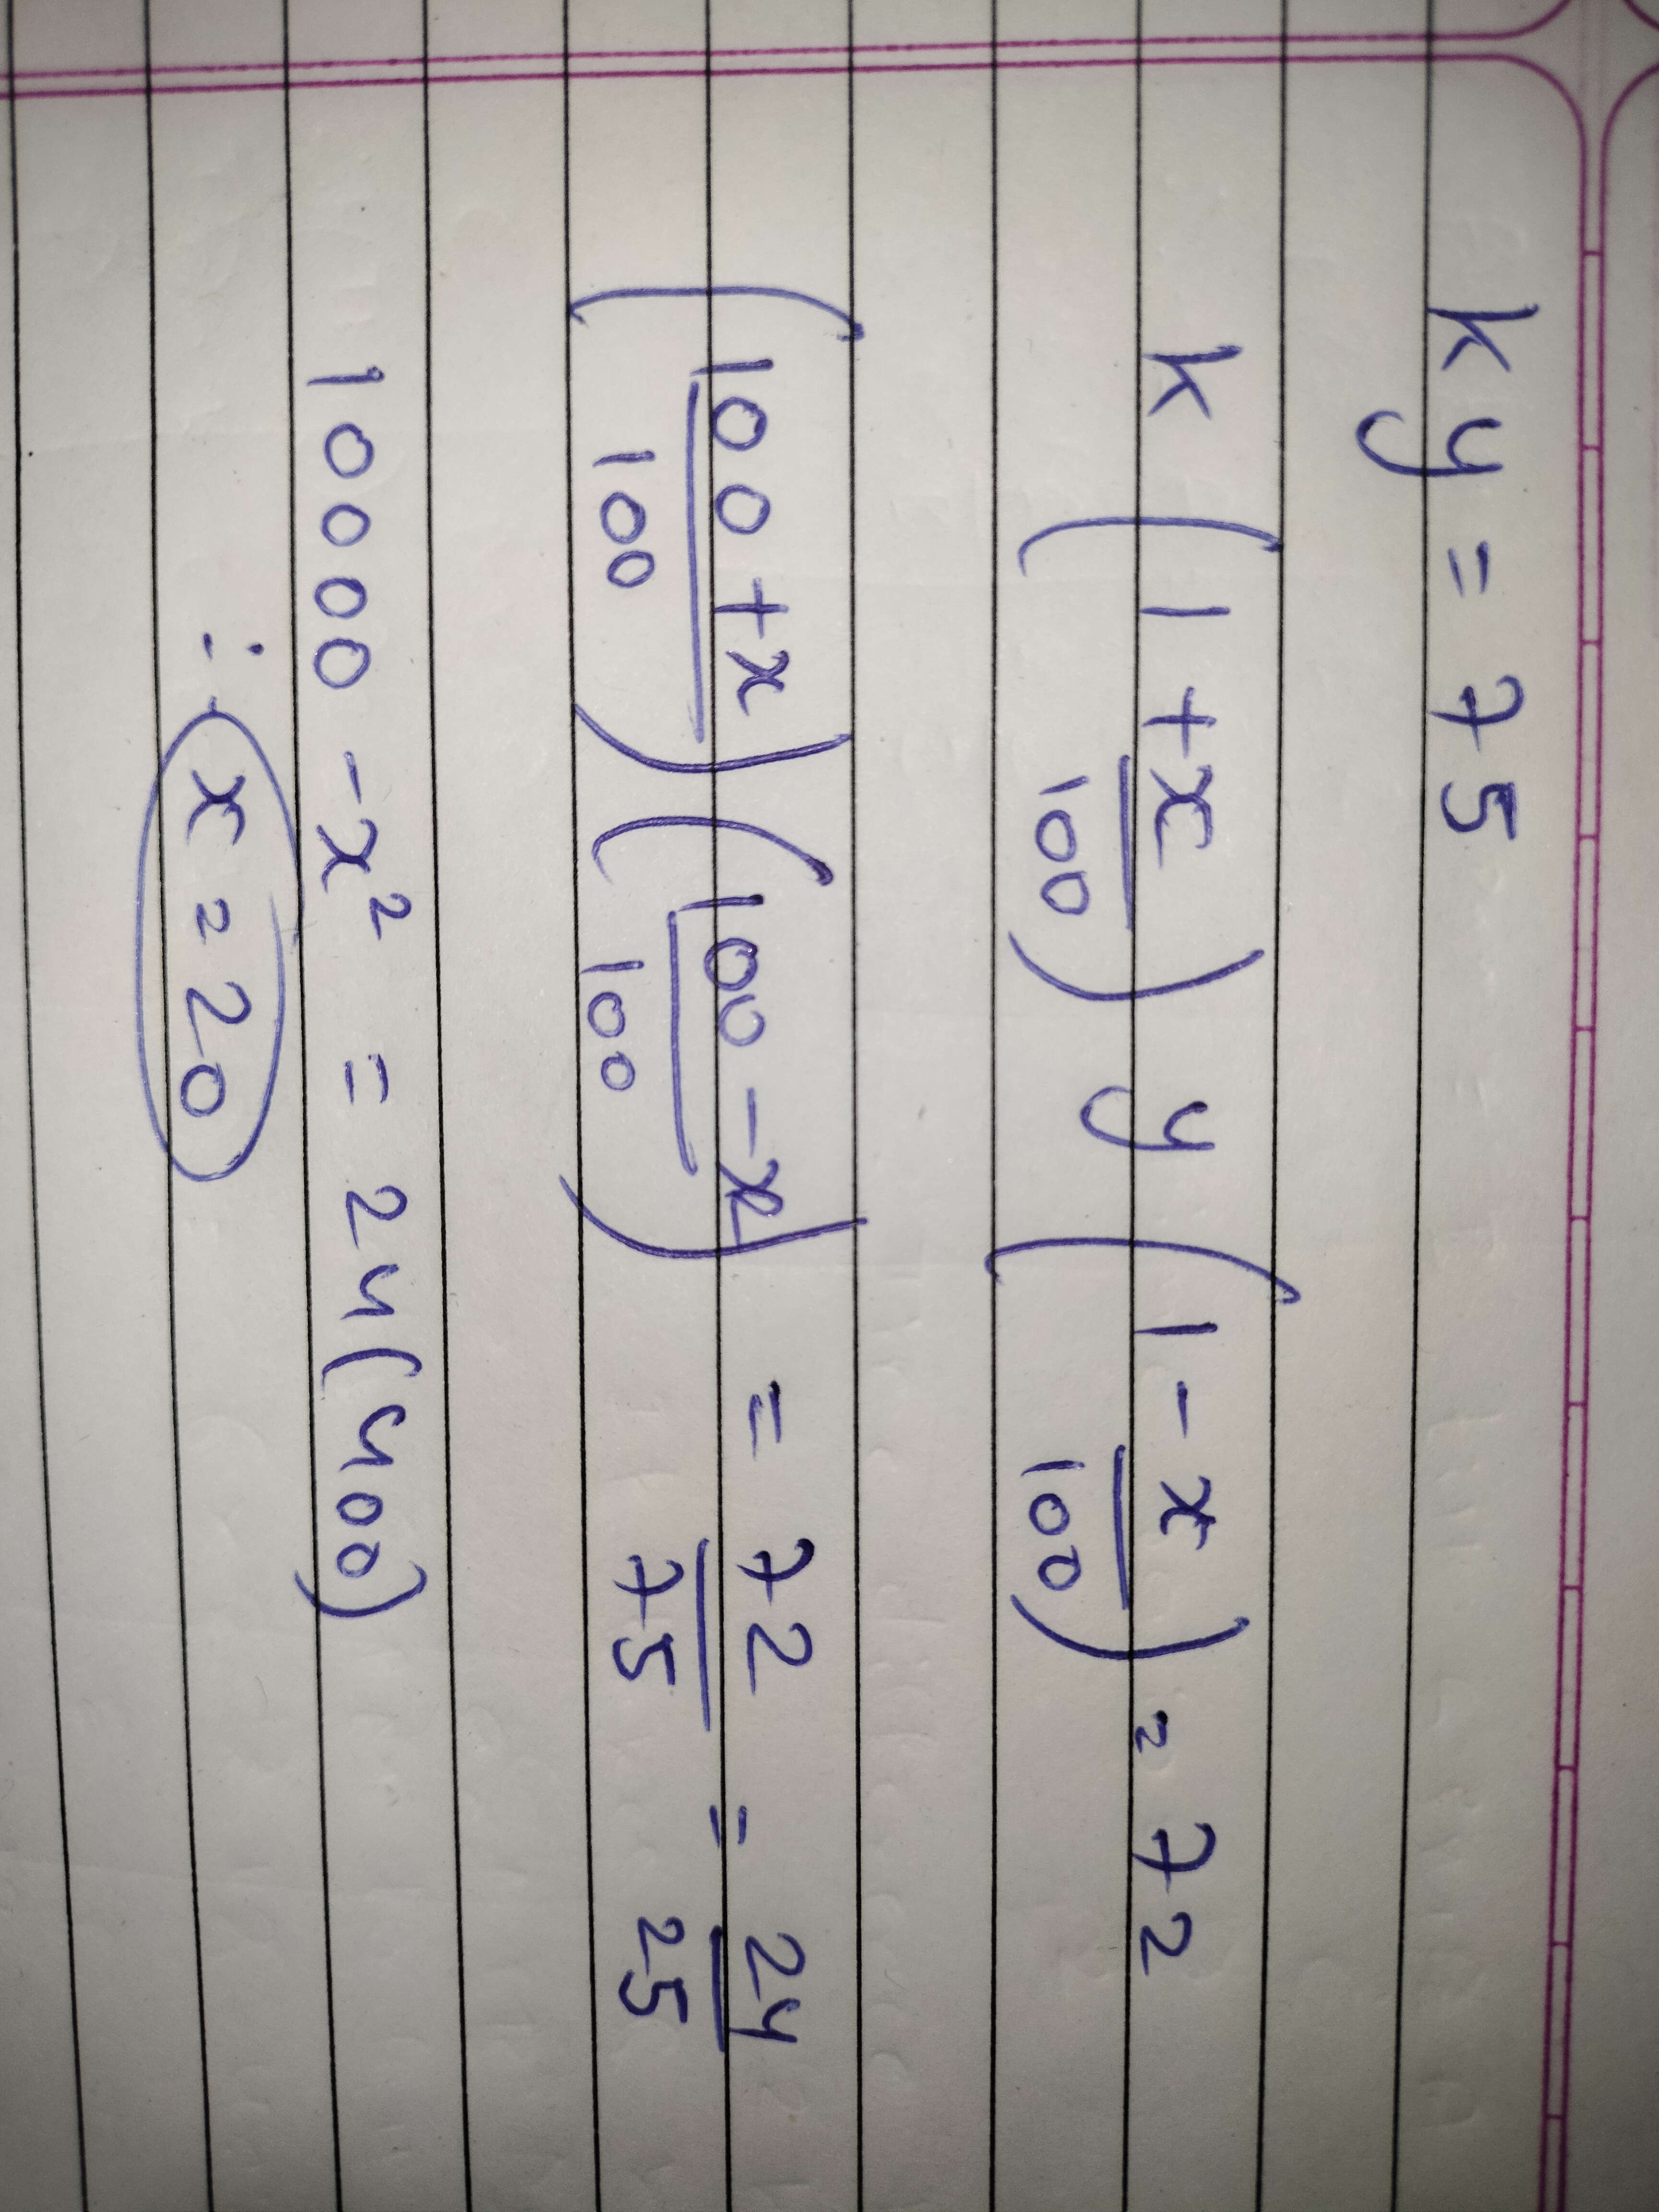 ky = 75
k (1 + x/100) y (1 - x/100) = 72
(100 + x/100) (100 - x/100) = 72/75 = 24/25
10000 - x² = 24(400)
∴ x = 20